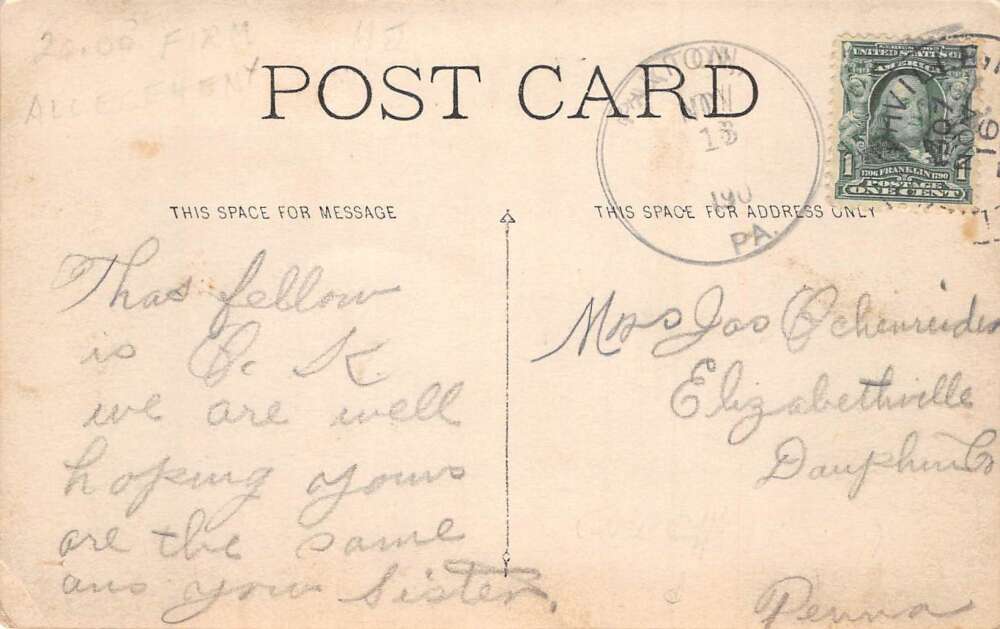 20.00 FIRM
ALLEGHENY
POST CARD
13
190
PA.
UNITED STATES OF
AMERICA
1706 FRANKLIN 1790
POSTAGE
1 ONE CENT 1
THIS SPACE FOR MESSAGE
THIS SPACE FOR ADDRESS ONLY
Thas fellow
is O. K
we are well
hoping yours
are the same
ans your Sister.
Mrs Jos
Elizabethville
Dauphin Co
Penna